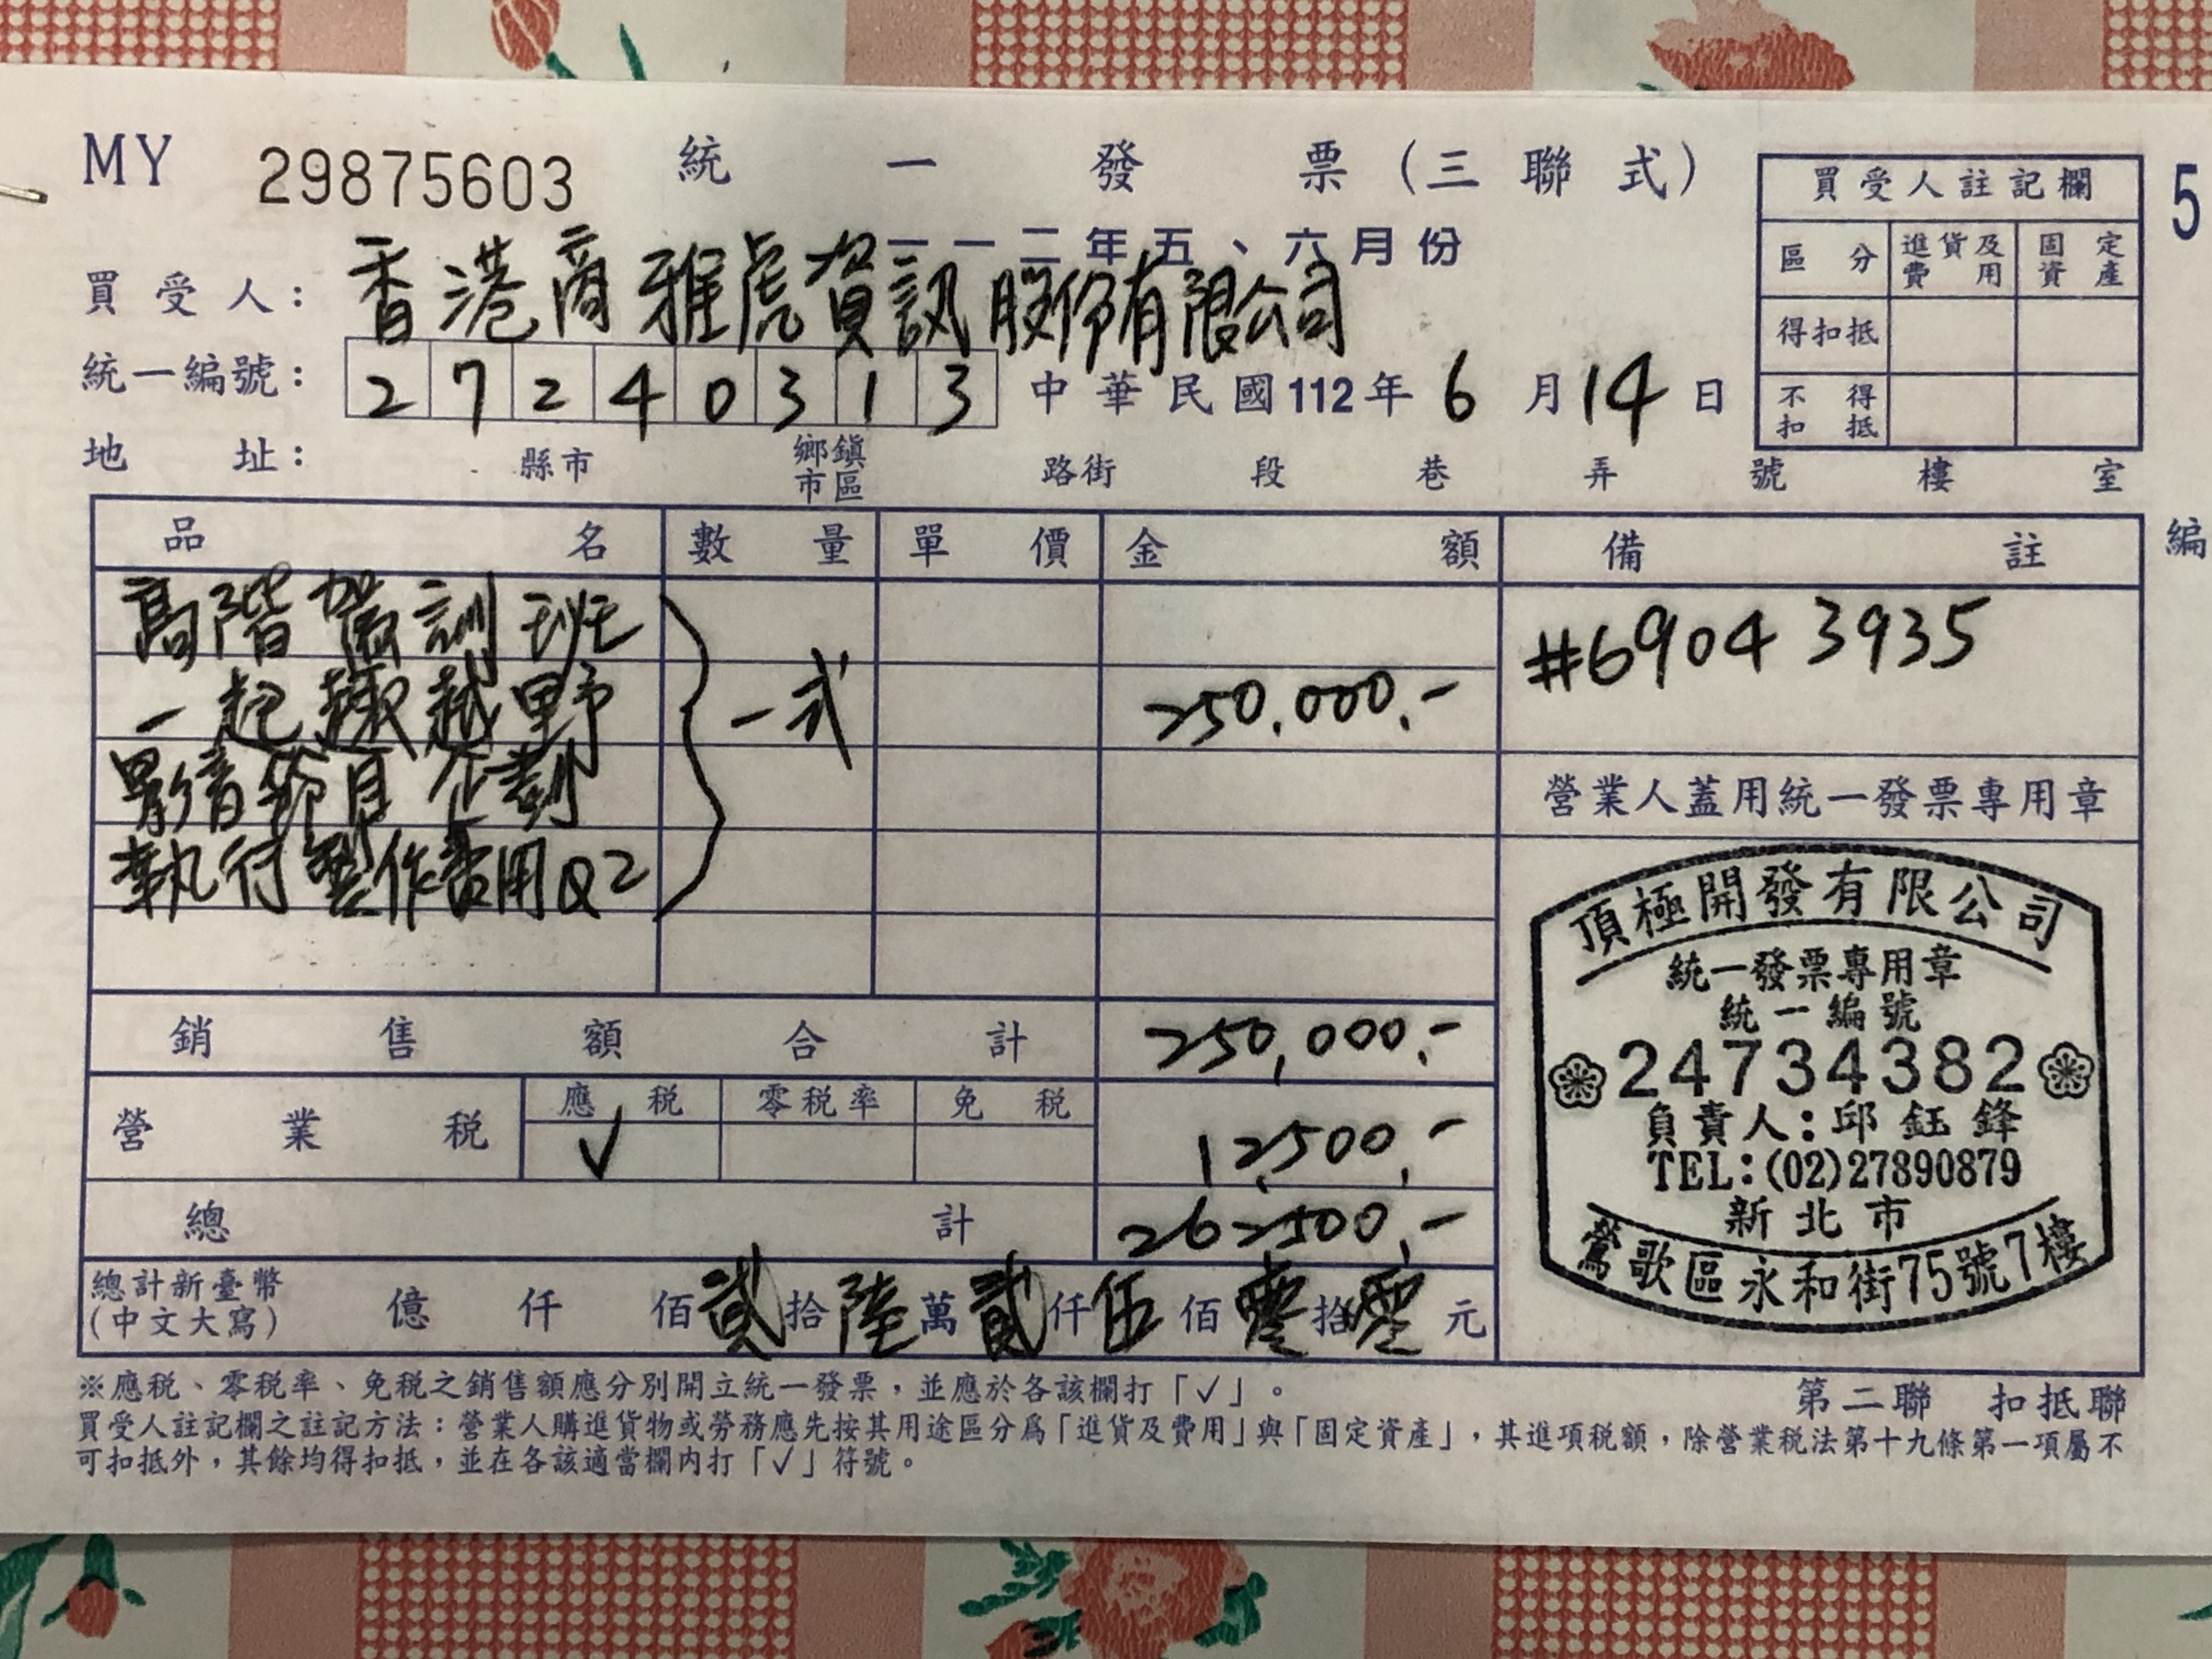 MY 29875603 統一發票(三聯式)
一一二年五、六月份
買受人註記欄
區分 進貨及費用 固定資產
得扣抵
不得扣抵
5
買受人: 香港商雅虎資訊股份有限公司
統一編號: 27240313 中華民國112年6月14日
地址: 縣市 鄉鎮市區 路街 段 巷 弄 號 樓 室
品名 數量 單價 金額 備註
編
高階營訓班
一起越越野
影音節目企劃
執行製作費用Q2
一式
250,000.-
#69043935
營業人蓋用統一發票專用章
銷售額合計 250,000.-
營業稅 應稅 零稅率 免稅
✓
12,500.-
總計 262,500.-
總計新臺幣
(中文大寫)
億 仟 佰貳拾陸萬貳仟伍佰零拾零元
頂極開發有限公司
統一發票專用章
統一編號
24734382
負責人:邱鈺鋒
TEL:(02)27890879
新北市
鶯歌區永和街75號7樓
※應稅、零稅率、免稅之銷售額應分別開立統一發票,並應於各該欄打「✓」。
第二聯 扣抵聯
買受人註記欄之註記方法:營業人購進貨物或勞務應先按其用途區分為「進貨及費用」與「固定資產」,其進項稅額,除營業稅法第十九條第一項屬不
可扣抵外,其餘均得扣抵,並在各該適當欄內打「✓」符號。